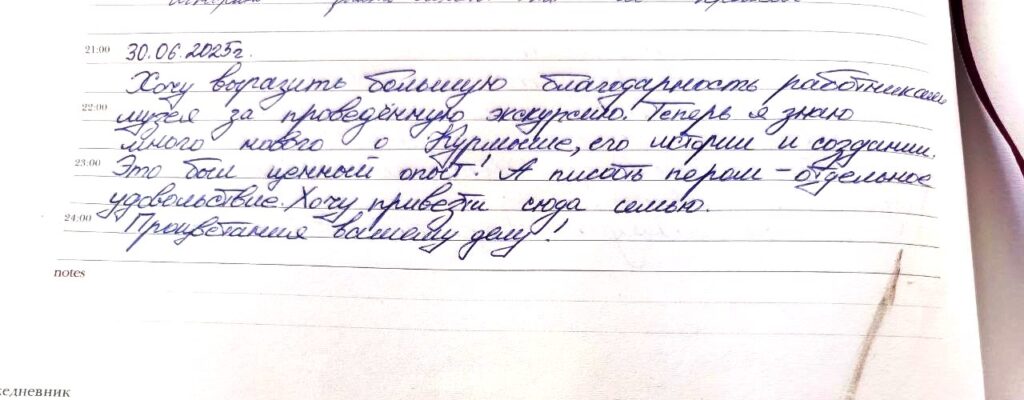 21:00 30.06.2025г.
Хочу выразить большую благодарность работникам
22:00 музея за проведённую экскурсию. Теперь я знаю
много нового о Курмыше, его истории и создании.
23:00 Это был ценный опыт! А писать пером – отдельное
удовольствие. Хочу привезти сюда семью.
24:00 Процветания вашему делу!
notes
едневник